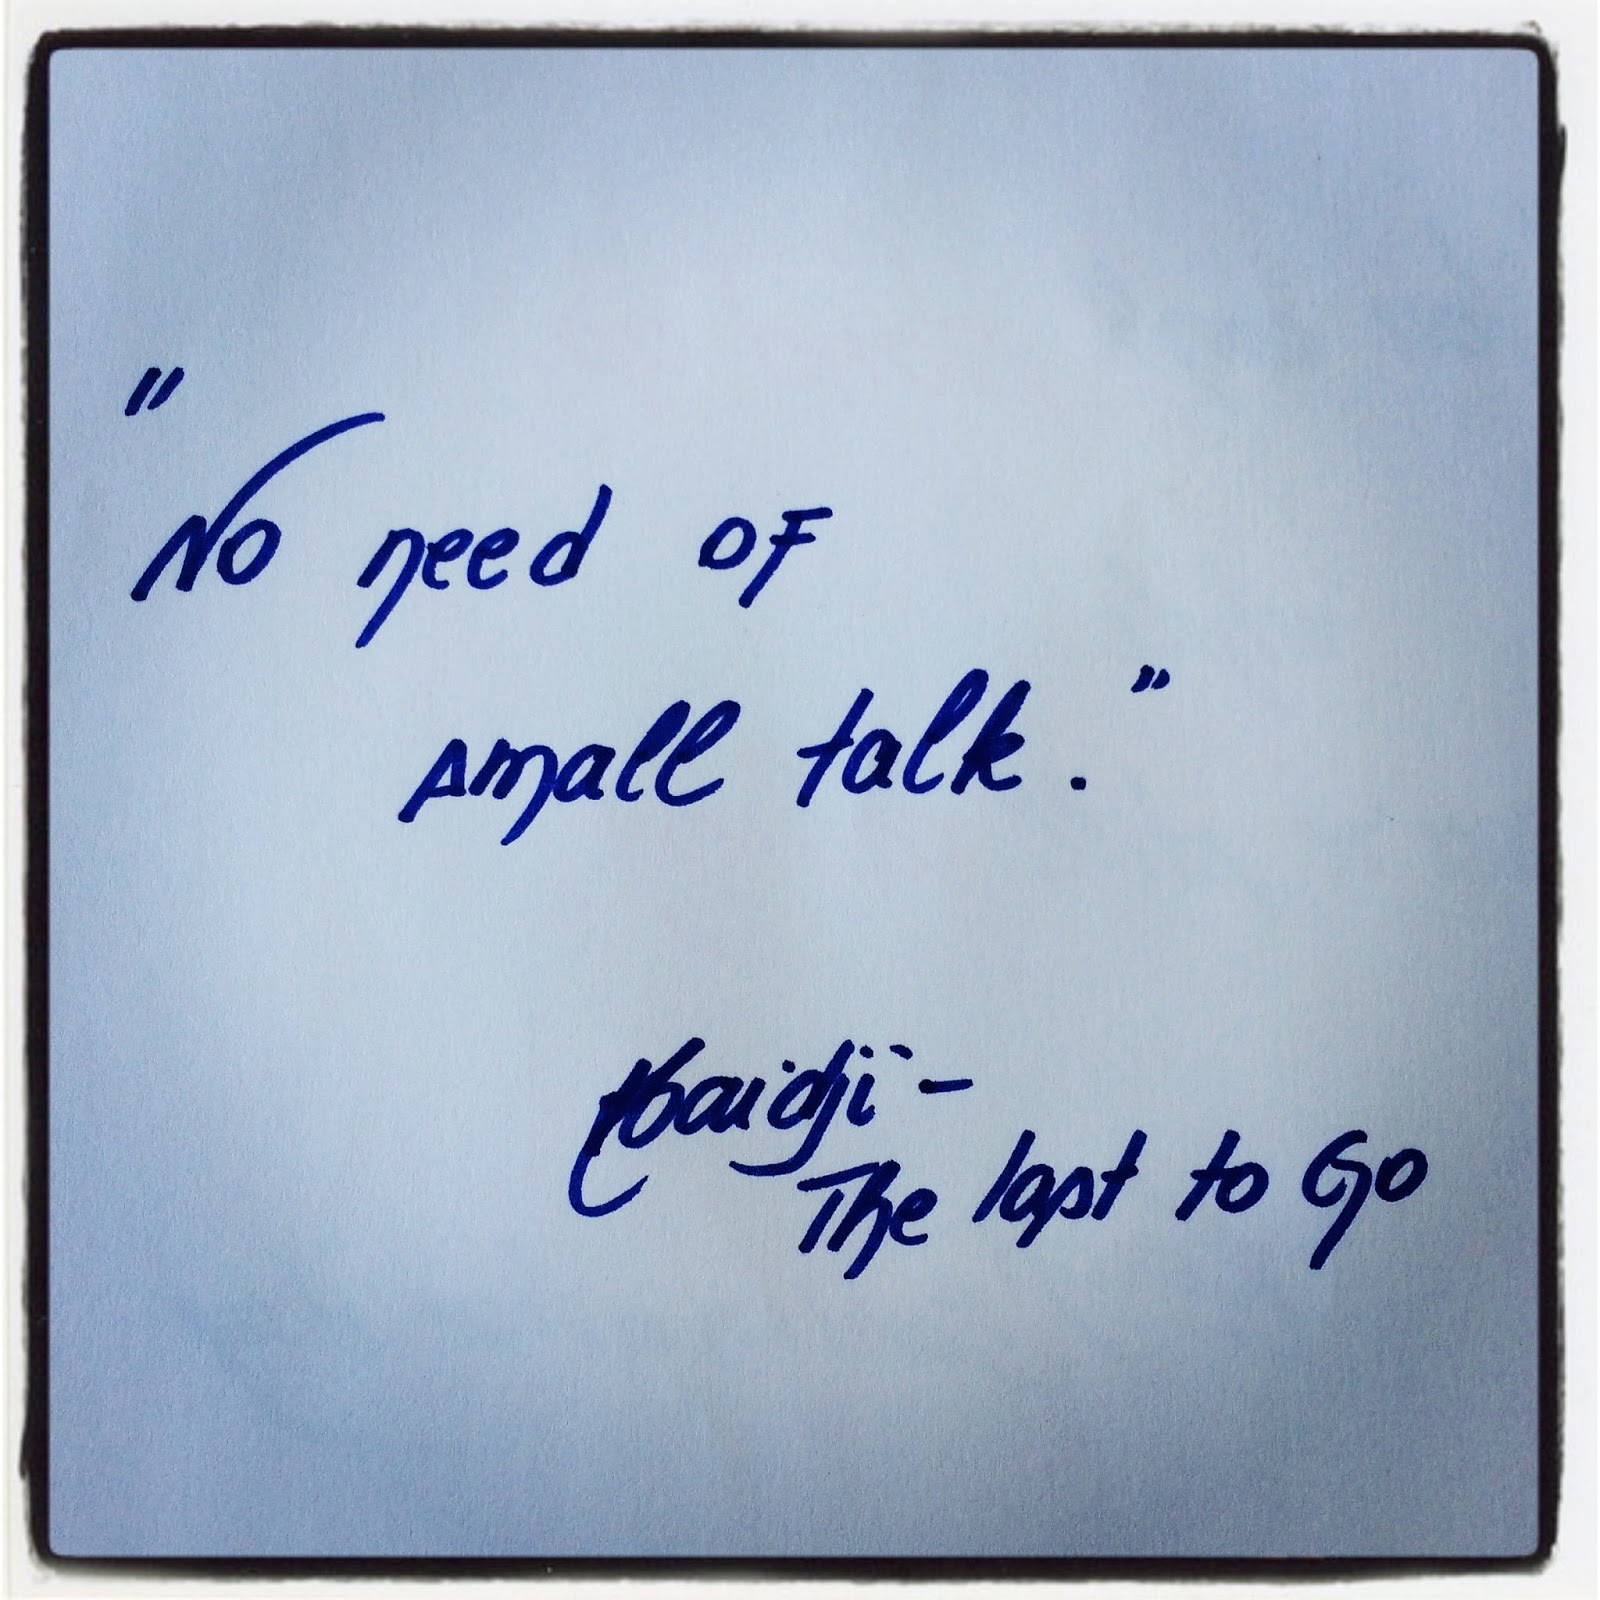 "No need of
small talk."
Kaidji -
The last to Go